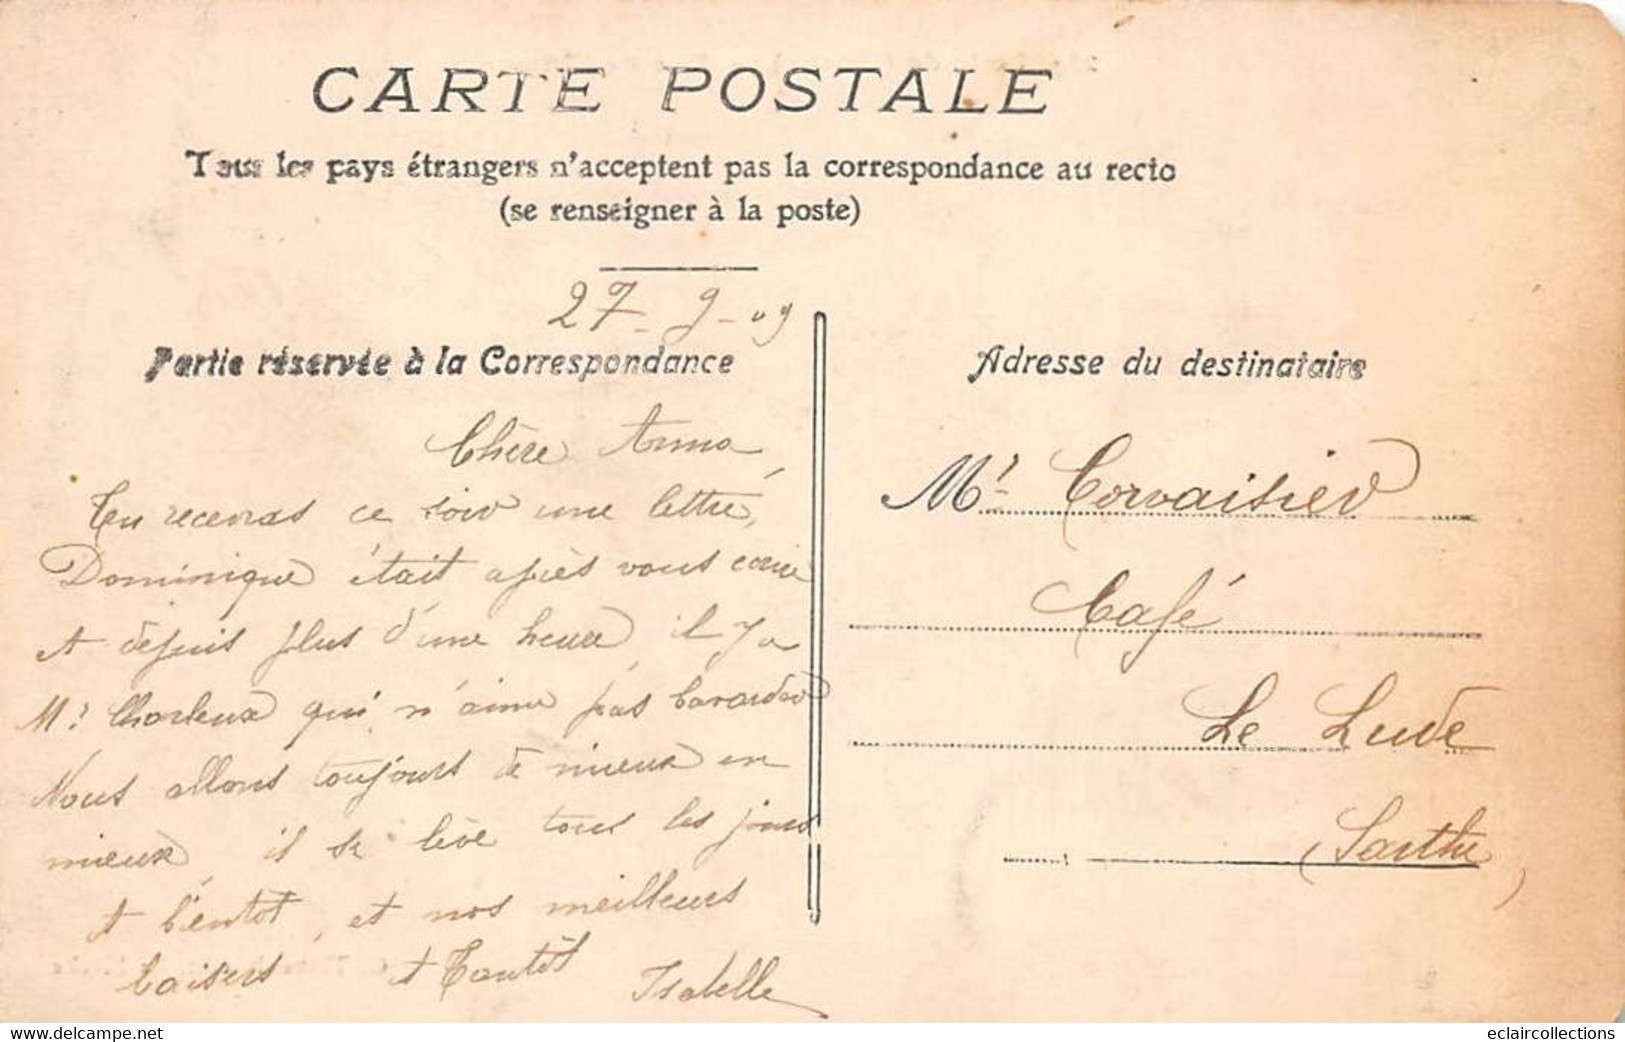 CARTE POSTALE
Tous les pays étrangers n'acceptent pas la correspondance au recto
(se renseigner à la poste)
27-9-09
Partie réservée à la Correspondance
Chère Anna
Tu recevras ce soir une lettre,
Dominique était après vous écrire
et depuis plus d'une heure il y a
Mr qui n'aime pas bavarder
Nous allons toujours de mieux en
mieux, il se lève tous les jours
A bientôt, et nos meilleurs
baisers à tous
Isabelle
Adresse du destinataire
Mr Corvaisier
Café
Le Lude
(Sarthe)
www.delcampe.net
eclaircollections